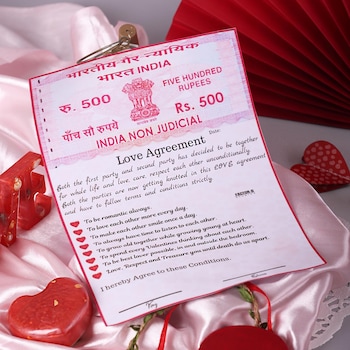 भारतीय गैर न्यायिक
भारत INDIA
रु. 500
FIVE HUNDRED
RUPEES
पाँच सौ रुपये
Rs. 500
INDIA NON JUDICIAL
Date:
Love Agreement
Both the first party and second party has decided to be together
for whole life and love care, respect each other unconditionally
Both the parties are now getting limited in this LOVE agreement
and have to follow terms and conditions strictly.
To be romantic always.
To love each other more every day.
To make each other smile once a day.
To always have time to listen to each other.
To grow old together while growing young at heart.
To spend every Valentines thinking about each other.
To be best lover possible, in and outside the bedroom.
Love, Respect and Treasure you until death do us apart.
I hereby Agree to these Conditions.
Boy